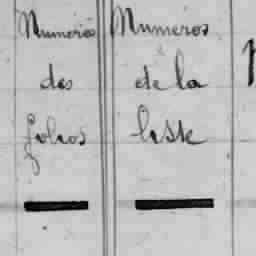 Numeros
des
folios
Numeros
de la
liste